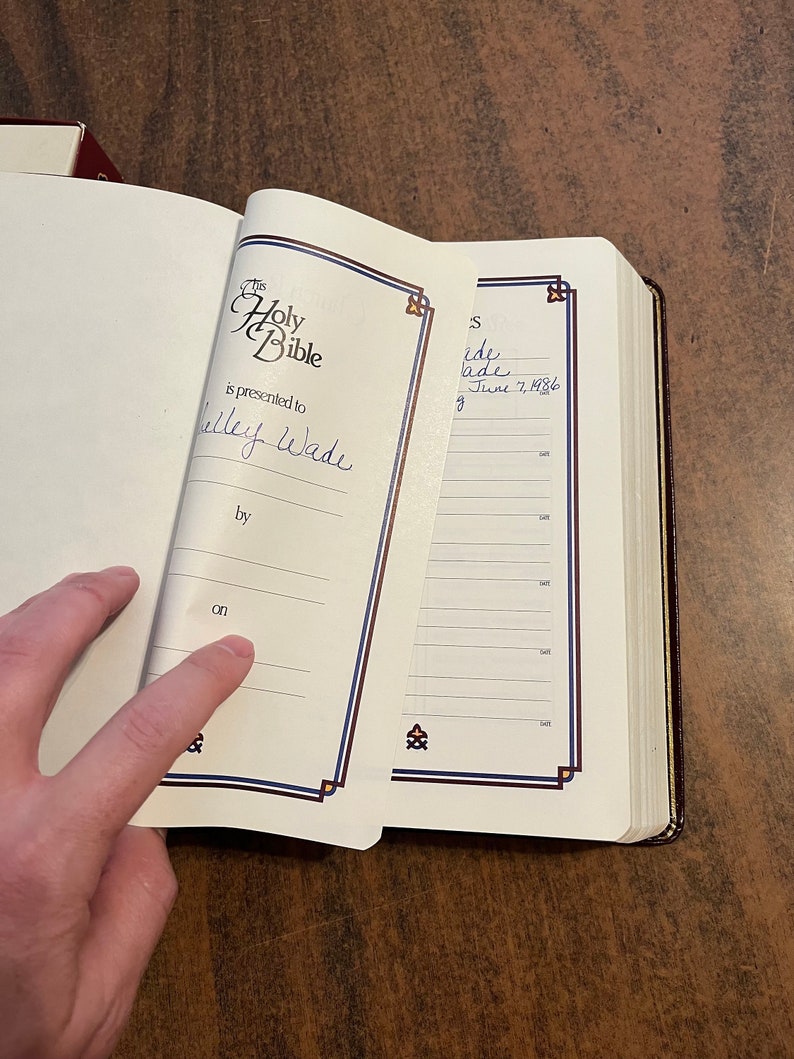 This
Holy
Bible
is presented to
elley Wade
by
on
es
ade
ade
June 7, 1986
g
DATE
DATE
DATE
DATE
DATE
DATE